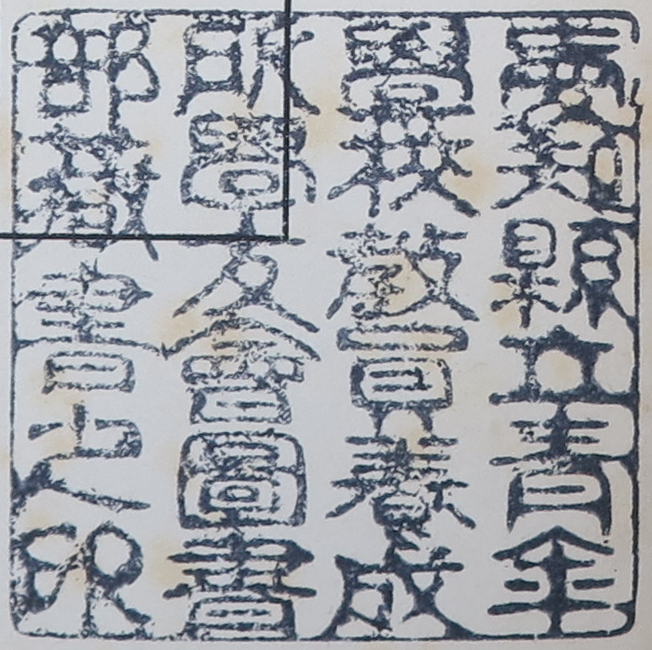 愛知縣立青年
學校教員養成
所學友會圖書
部藏書之印